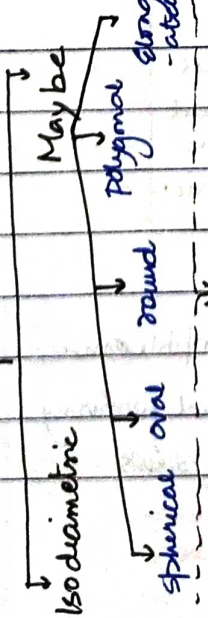 Isodiametric May be
Spherical oval round Polygonal Elong
-ated